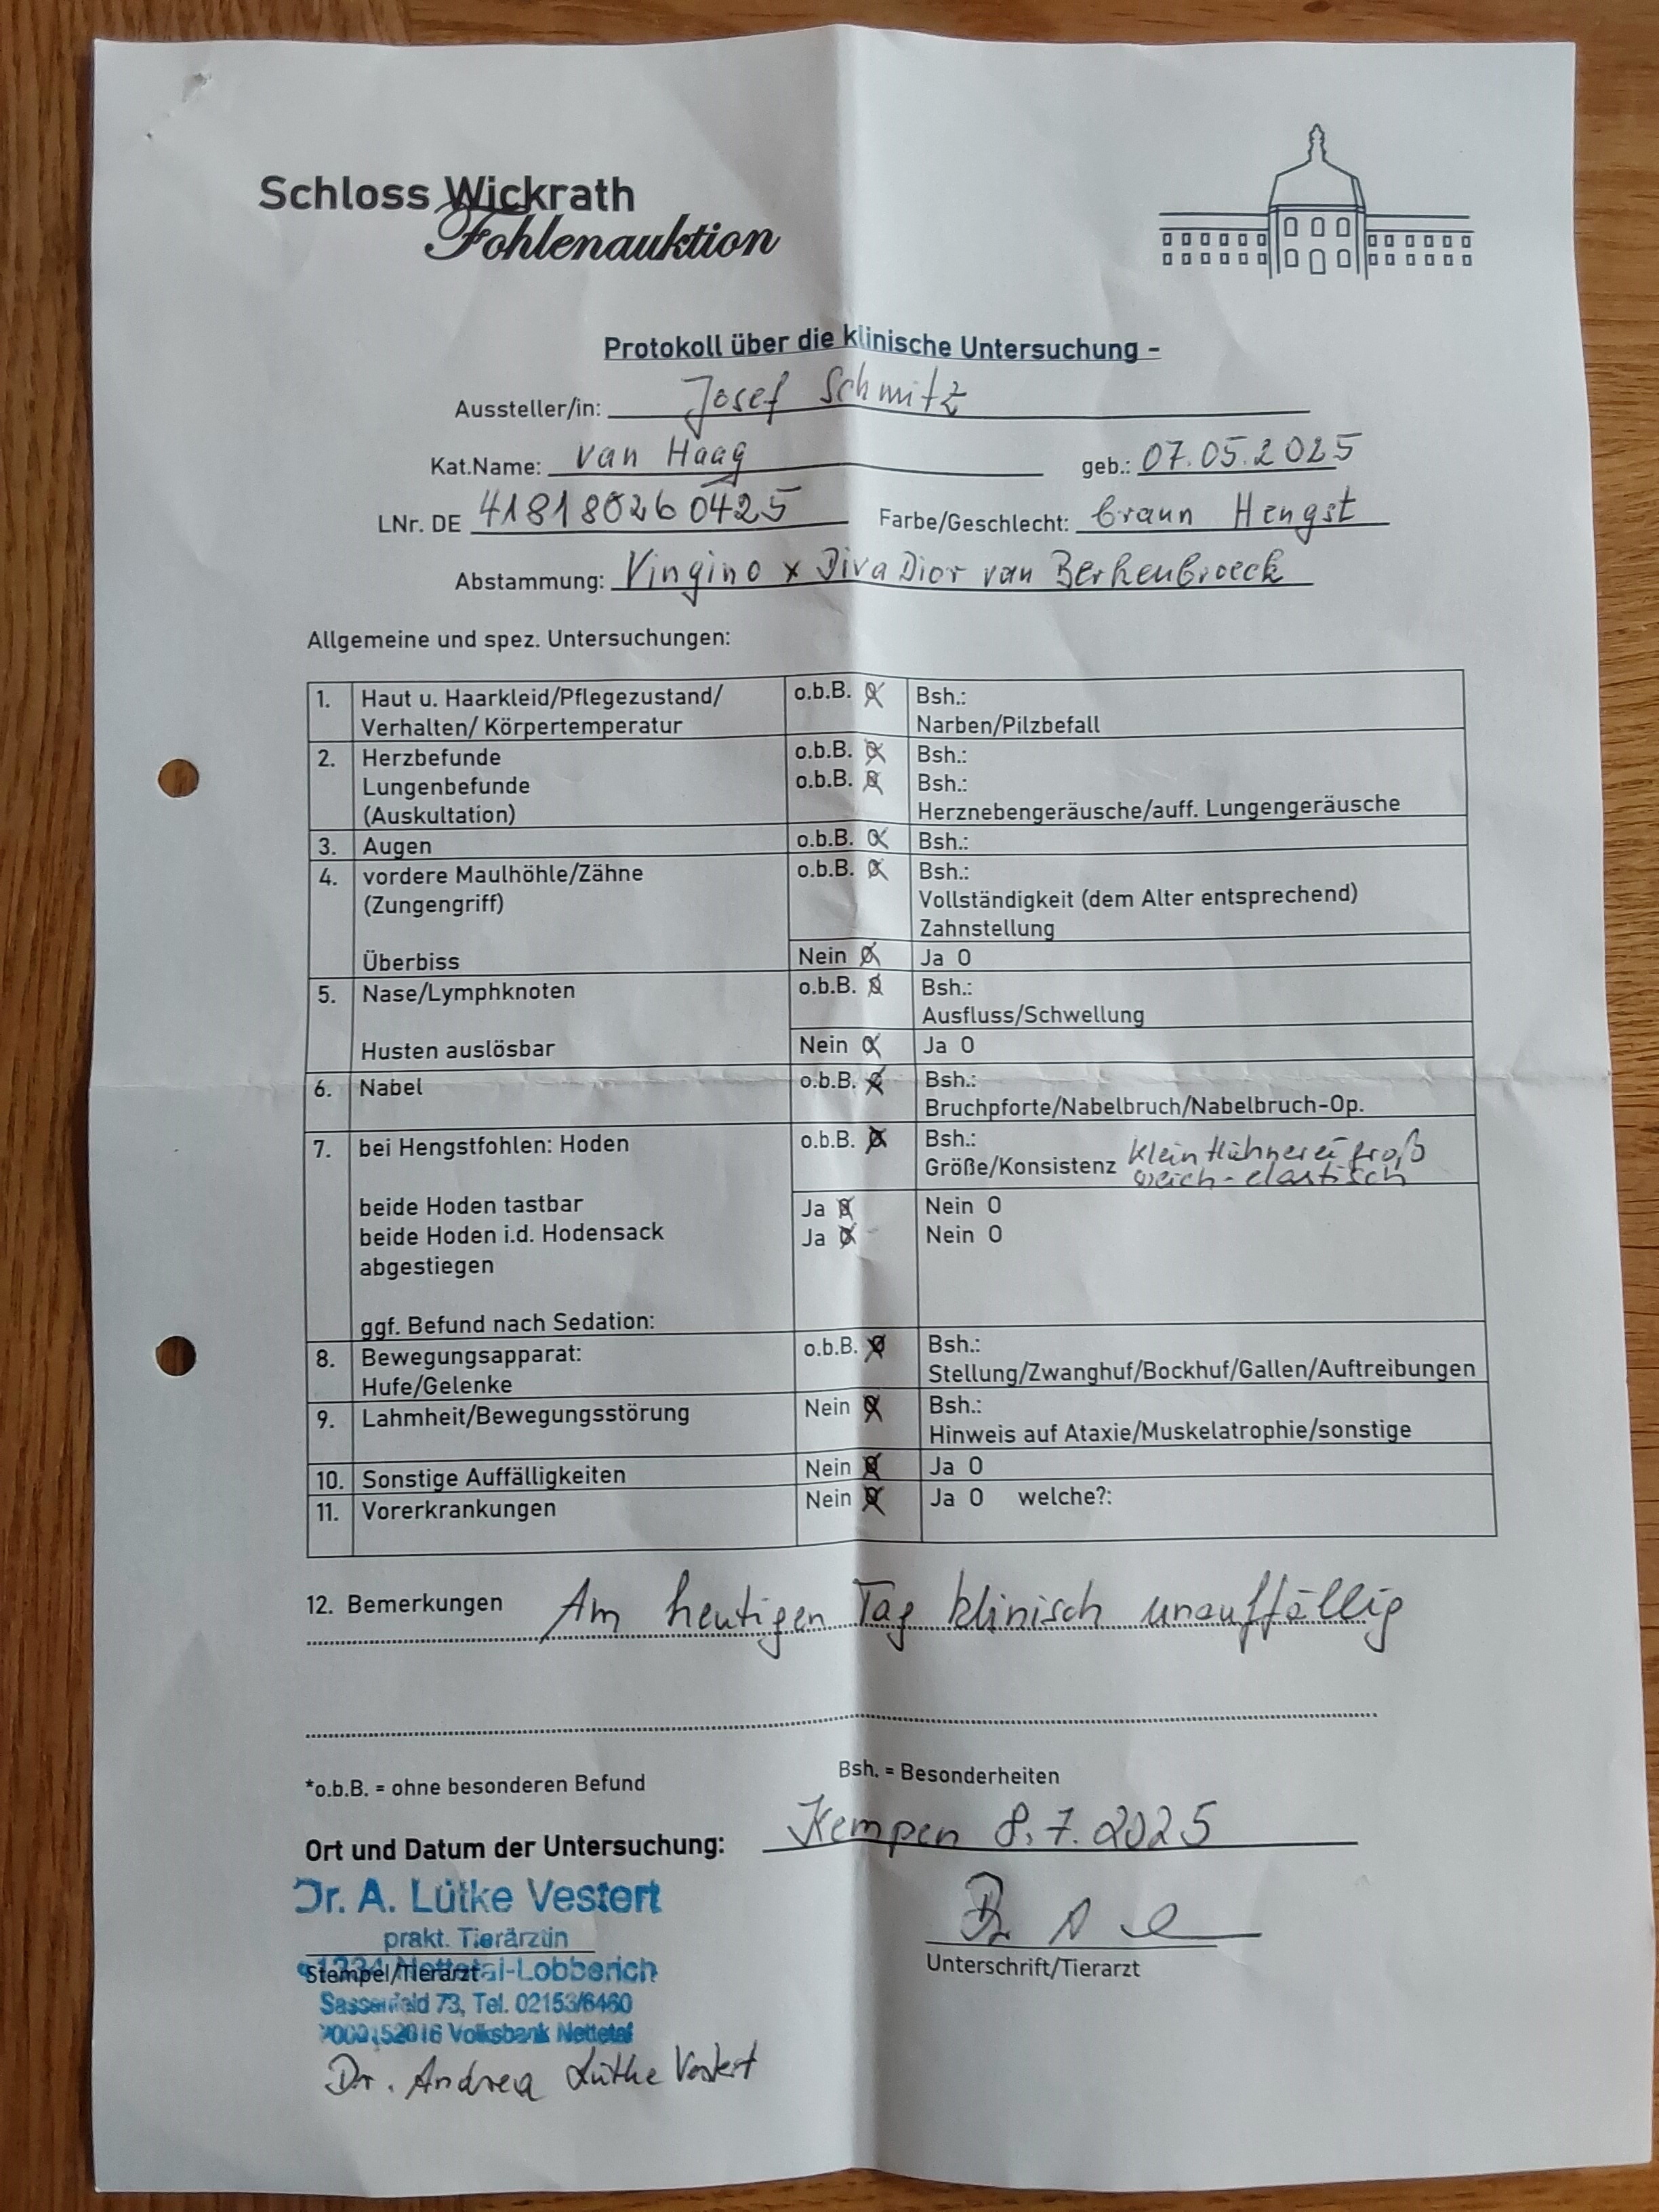 Schloss Wickrath
Fohlenauktion
Protokoll über die klinische Untersuchung -
Aussteller/in: Josef Schmitz
Kat.Name: van Haag geb.: 07.05.2025
LNr. DE 418180260425 Farbe/Geschlecht: braun Hengst
Abstammung: Vingino x Diva Dior van Berkenbroeck
Allgemeine und spez. Untersuchungen:
1. Haut u. Haarkleid/Pflegezustand/ o.b.B. Bsh.:
Verhalten/ Körpertemperatur Narben/Pilzbefall
2. Herzbefunde o.b.B. Bsh.:
Lungenbefunde o.b.B. Bsh.:
(Auskultation) Herznebengeräusche/auff. Lungengeräusche
3. Augen o.b.B. Bsh.:
4. vordere Maulhöhle/Zähne o.b.B. Bsh.:
(Zungengriff) Vollständigkeit (dem Alter entsprechend)
Zahnstellung
Überbiss Nein Ja O
5. Nase/Lymphknoten o.b.B. Bsh.:
Ausfluss/Schwellung
Husten auslösbar Nein Ja O
6. Nabel o.b.B. Bsh.:
Bruchpforte/Nabelbruch/Nabelbruch-Op.
7. bei Hengstfohlen: Hoden o.b.B. Bsh.:
Größe/Konsistenz klein Hühnerei groß
weich-elastisch
beide Hoden tastbar Ja Nein O
beide Hoden i.d. Hodensack Ja Nein O
abgestiegen
ggf. Befund nach Sedation:
8. Bewegungsapparat: o.b.B. Bsh.:
Hufe/Gelenke Stellung/Zwanghuf/Bockhuf/Gallen/Auftreibungen
9. Lahmheit/Bewegungsstörung Nein Bsh.:
Hinweis auf Ataxie/Muskelatrophie/sonstige
10. Sonstige Auffälligkeiten Nein Ja O
11. Vorerkrankungen Nein Ja O welche?:
12. Bemerkungen Am heutigen Tag klinisch unauffällig
*o.b.B. = ohne besonderen Befund Bsh. = Besonderheiten
Ort und Datum der Untersuchung: Kempen 8.7.2025
Dr. A. Lütke Vestert
prakt. Tierärztin
Stempel/Tierarzt Unterschrift/Tierarzt
41334 Nettetal-Lobberich
Sassenfeld 73, Tel. 02153/6460
Volksbank Nettetal
Dr. Andrea Lütke Vestert